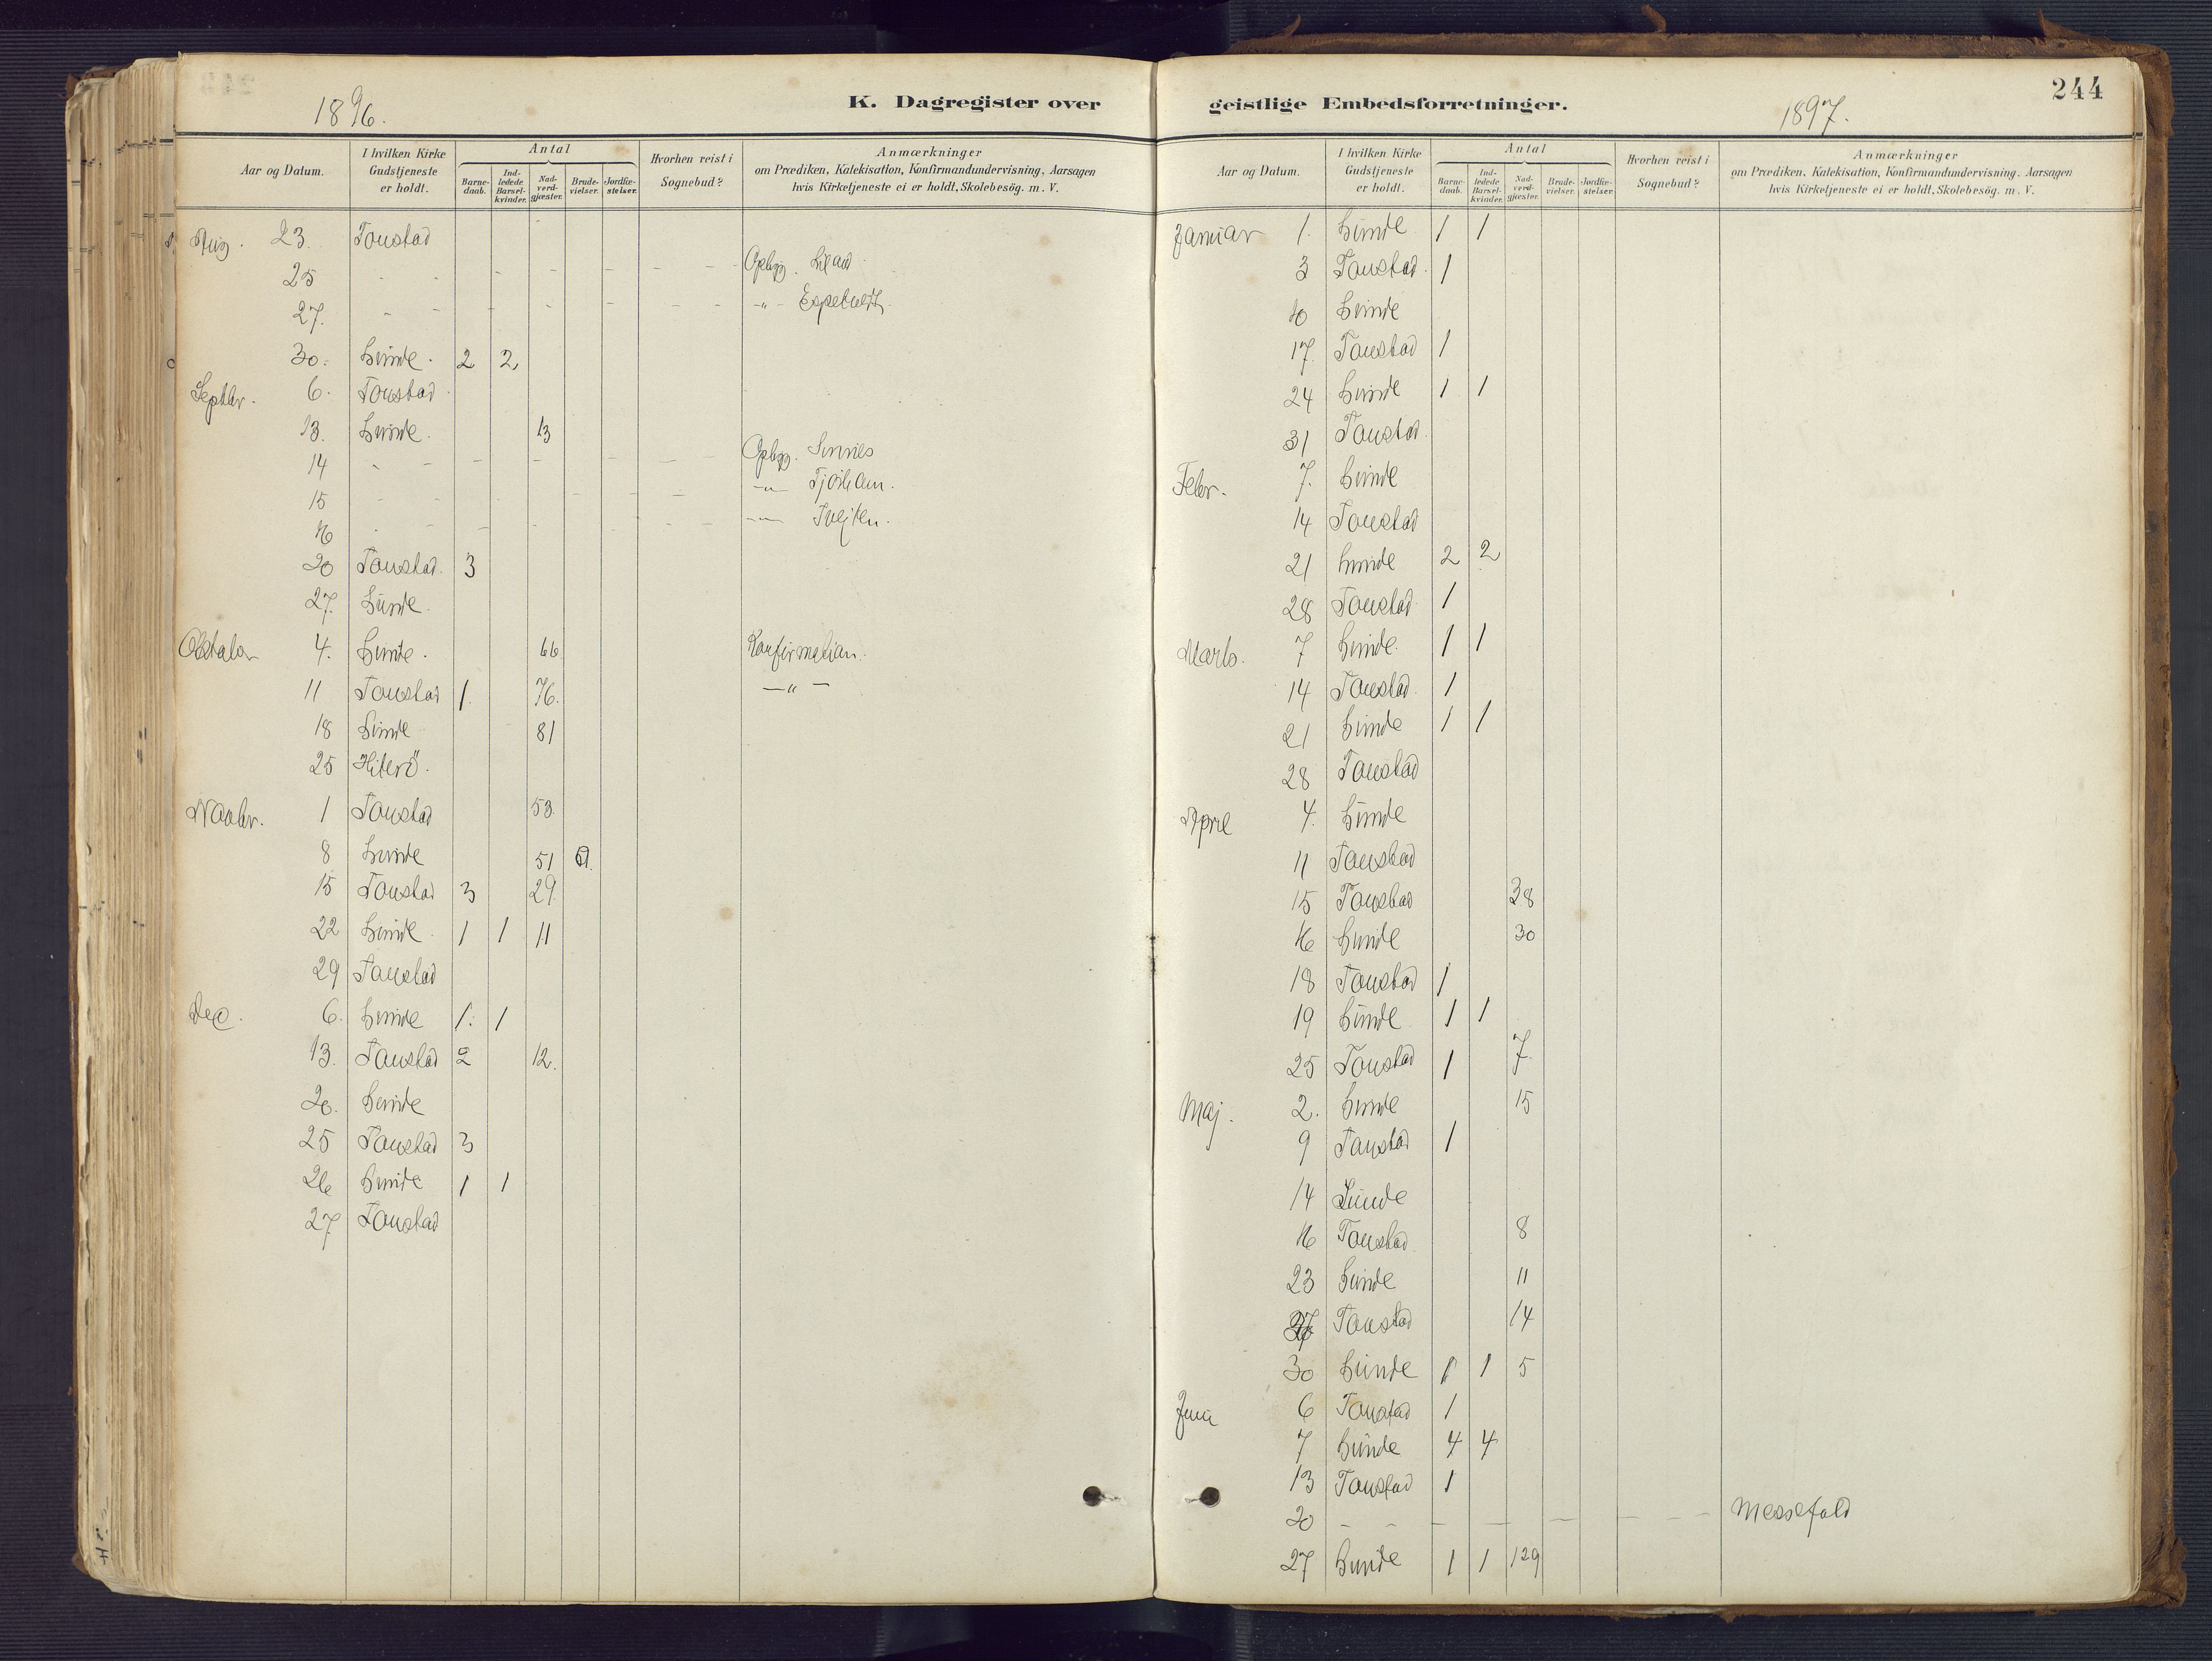 244
1896.
K. Dagregister over
Aar og Datum.
I hvilken Kirke Gudstjeneste er holdt.
Antal
Barnedaab.
Indledede Barselkvinder.
Nadverdgjæster.
Brudevielser.
Jordfæstelser.
Hvorhen reist i Sognebud?
Anmærkninger
om Prædiken, Katekisation, Konfirmandundervisning, Aarsagen
hvis Kirketjeneste ei er holdt, Skolebesög. m. V.
Aug. 23. Tonstad
25 - - - - - - - - Opbyg.
27. - - - - - - - - -"-
30. Lunde. 2 2
Septbr. 6. Tonstad
13. Lunde. 13
14 - - - - - - - - Opbyg. Sinnes
15 - - - - - - - -"- Tjörham.
16 - - - - - - - -"- Tvejten.
20 Tonstad. 3
27. Lunde.
Oktober 4. Lunde. 66 Konfirmation.
11 Tonstad 1. 76. -"-
18 Lunde 81
25 Hiterö.
Novbr. 1 Tonstad 53.
8 Lunde 51
15 Tonstad 3 29
22 Lunde 1 1 11
29 Tonstad
Dec. 6. Lunde 1. 1
13. Tonstad 2 12.
20. Lunde
25 Tonstad 3
26 Lunde 1 1
27 Tonstad
geistlige Embedsforretninger.
1897.
Aar og Datum.
I hvilken Kirke Gudstjeneste er holdt.
Antal
Barnedaab.
Indledede Barselkvinder.
Nadverdgjæster.
Brudevielser.
Jordfæstelser.
Hvorhen reist i Sognebud?
Anmærkninger
om Prædiken, Katekisation, Konfirmandundervisning, Aarsagen
hvis Kirketjeneste ei er holdt, Skolebesög. m. V.
Januar 1. Lunde 1 1
3 Tonstad. 1
10 Lunde
17. Tonstad 1
24 Lunde 1 1
31 Tonstad.
Febr. 7. Lunde
14 Tonstad
21 Lunde 2 2
28 Tonstad. 1
Marts. 7 Lunde. 1 1
14 Tonstad. 1
21 Lunde 1 1
28 Tonstad
April 4. Lunde
11 Tonstad
15 Tonstad 38
16 Lunde 30
18 Tonstad 1
19 Lunde 1 1
25 Tonstad 1 7.
Maj. 2. Lunde 15
9 Tonstad 1
14 Lunde
16 Tonstad 8
23 Lunde 11
27 Tonstad 14
30 Lunde 1 1 5
Juni 6 Tonstad 1
7 Lunde 4 4
13 Tonstad 1
20 - - - - - - - - Messefald
27 Lunde 1 1 129